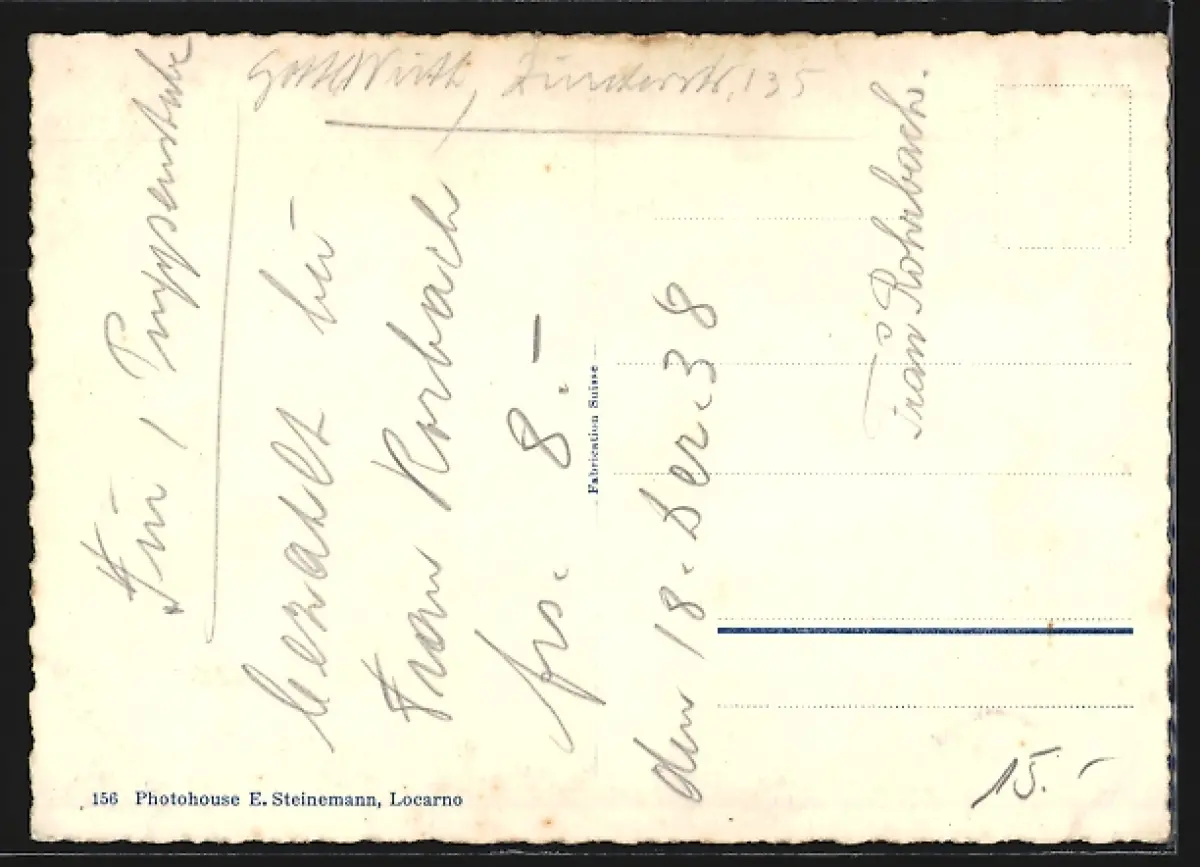 Für 1 Puppenstube
bezahlt bei
Frau Korbach
frs. 8.–
den 18. Dez. 38
Frau Rohrbach.
135
Fabrication Suisse
156 Photohouse E. Steinemann, Locarno
15.–